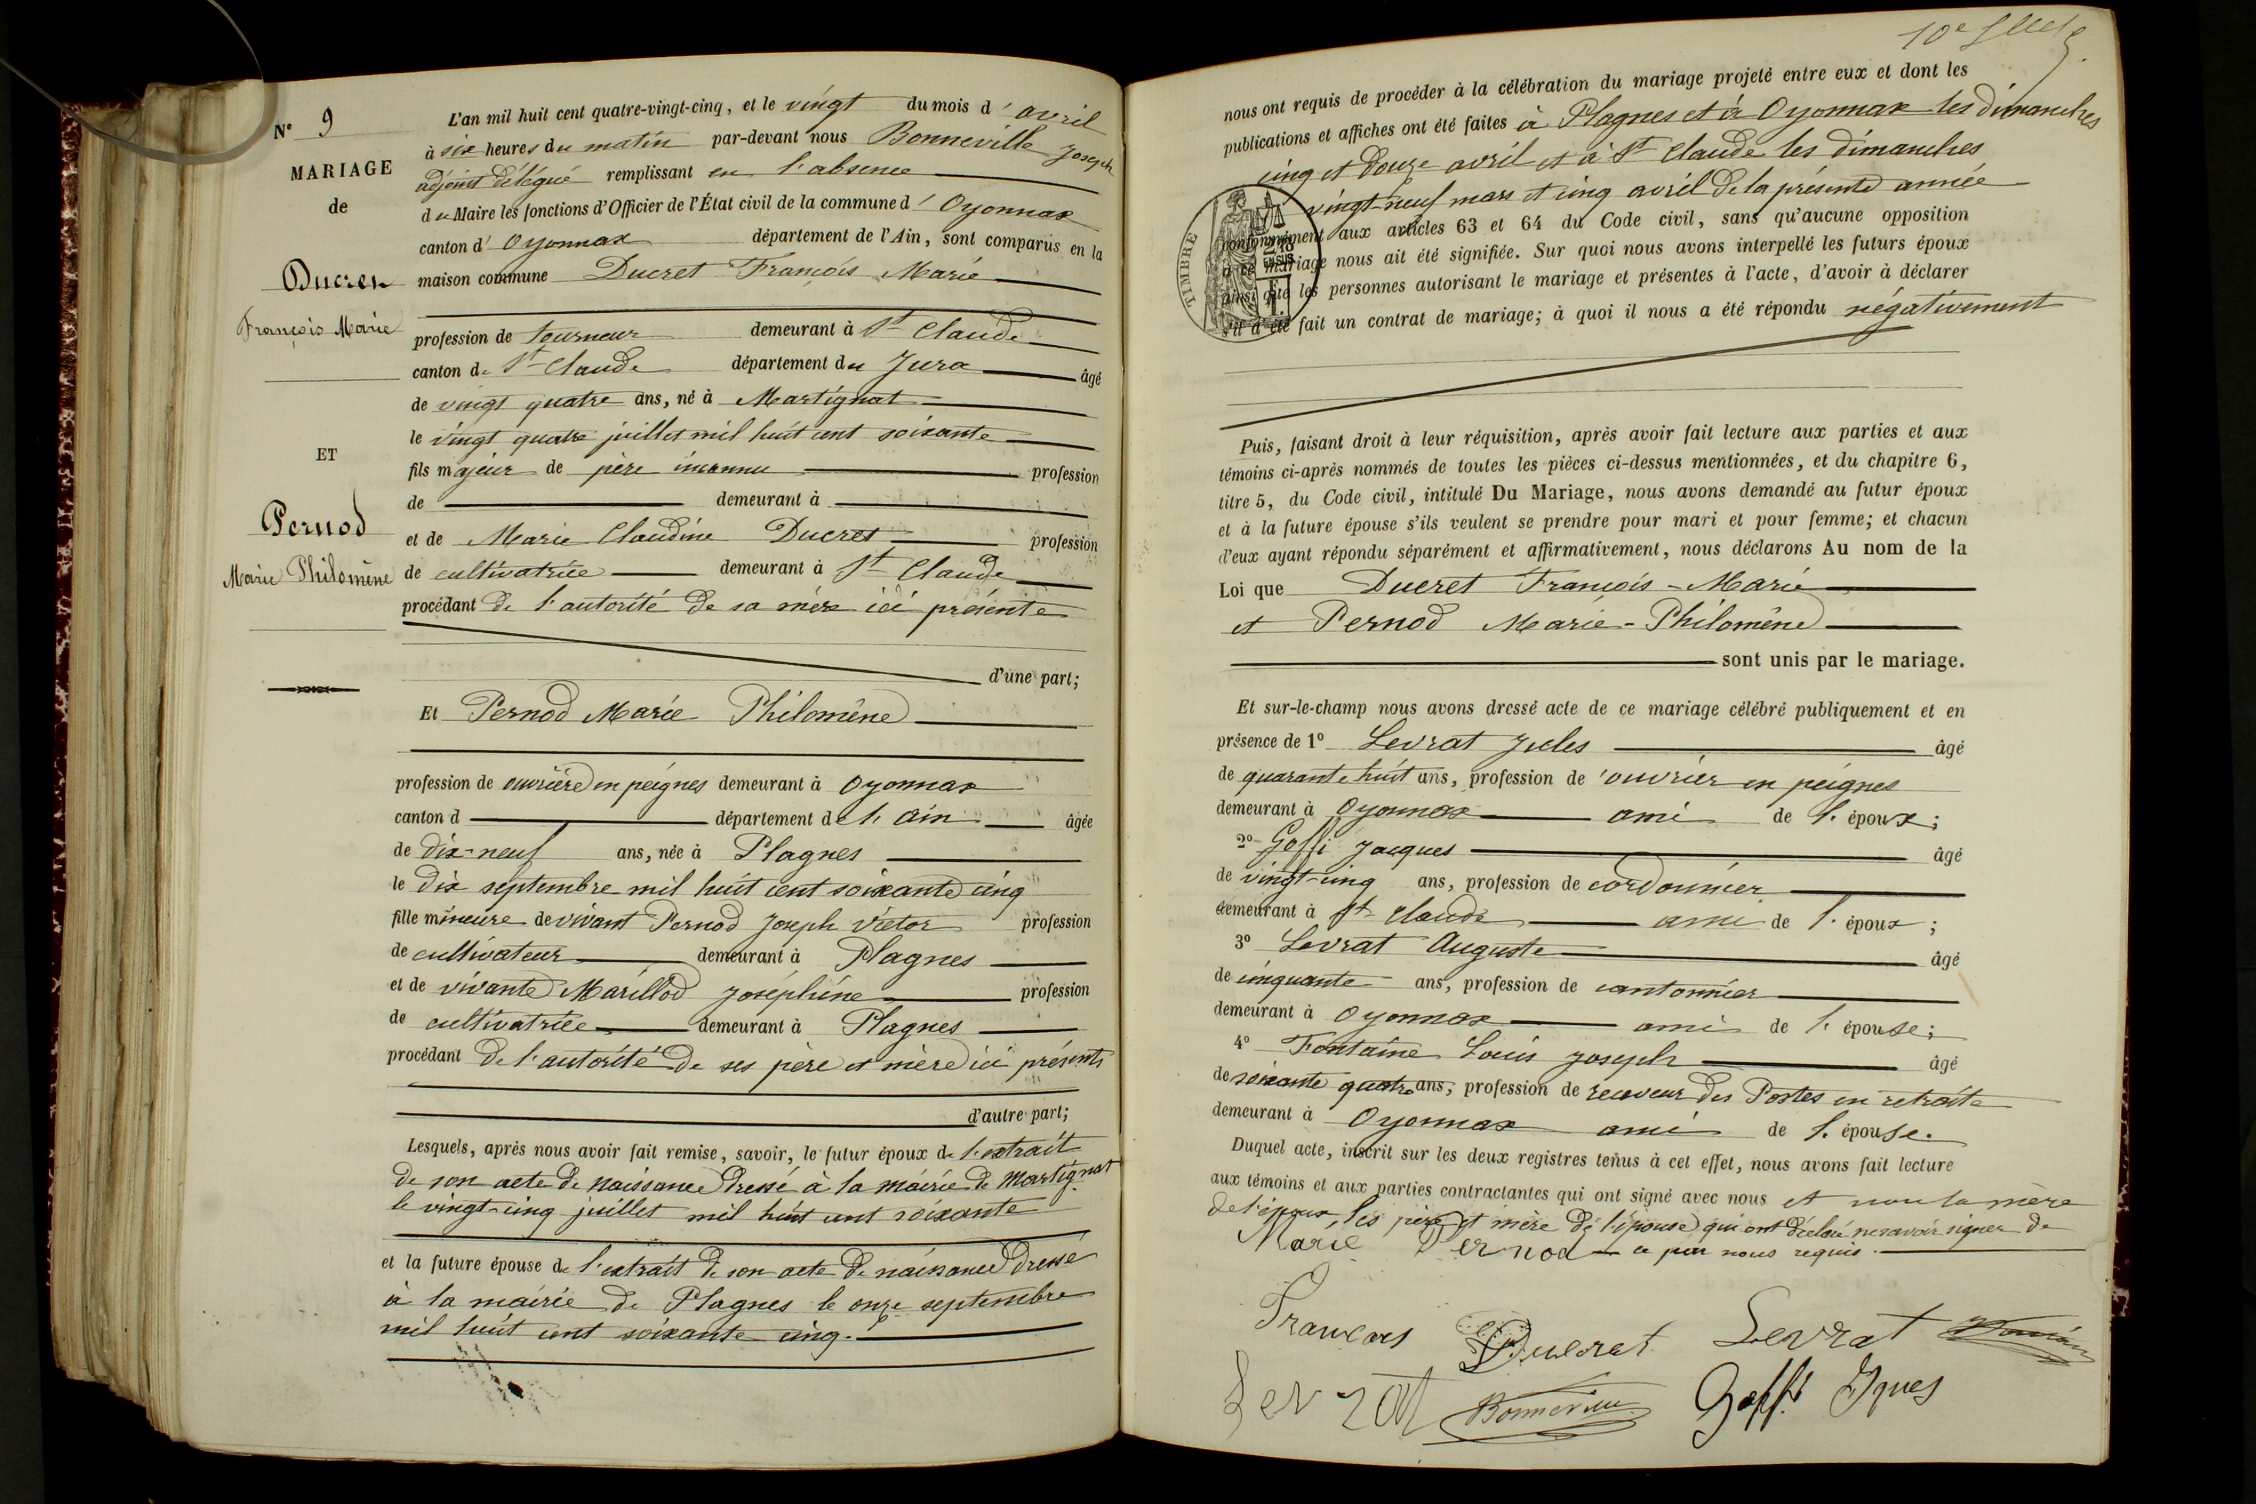 N° 9
MARIAGE
de
Ducret
François Marie
ET
Pernod
Marie Philomène
L'an mil huit cent quatre-vingt-cinq, et le vingt du mois d'avril
à six heures du matin par-devant nous Bonneville Joseph
adjoint délégué remplissant en l'absence
du Maire les fonctions d'Officier de l'État civil de la commune d'Oyonnax
canton d'Oyonnax département de l'Ain, sont comparus en la
maison commune Ducret François Marie
profession de tourneur demeurant à St Claude
canton de St Claude département du Jura âgé
de vingt quatre ans, né à Martignat
le vingt quatre juillet mil huit cent soixante
fils majeur de père inconnu profession
de demeurant à
et de Marie Claudine Ducret profession
de cultivatrice demeurant à St Claude
procédant de l'autorité de sa mère ici présente
d'une part;
Et Pernod Marie Philomène
profession de ouvrière en peignes demeurant à Oyonnax
canton d département de l'Ain âgée
de dix-neuf ans, née à Plagnes
le dix septembre mil huit cent soixante cinq
fille mineure de vivant Pernod Joseph Victor profession
de cultivateur demeurant à Plagnes
et de vivante Marillod Joséphine profession
de cultivatrice demeurant à Plagnes
procédant de l'autorité de ses père et mère ici présents
d'autre part;
Lesquels, après nous avoir fait remise, savoir, le futur époux de l'extrait
de son acte de naissance dressé à la mairie de Martignat
le vingt-cinq juillet mil huit cent soixante
et la future épouse de l'extrait de son acte de naissance dressé
à la mairie de Plagnes le onze septembre
mil huit cent soixante cinq.
10e
nous ont requis de procéder à la célébration du mariage projeté entre eux et dont les
publications et affiches ont été faites à Plagnes et à Oyonnax les dimanches
cinq et douze avril et à St Claude les dimanches
vingt-neuf mars et cinq avril de la présente année
conformément aux articles 63 et 64 du Code civil, sans qu'aucune opposition
à ce mariage nous ait été signifiée. Sur quoi nous avons interpellé les futurs époux
ainsi que les personnes autorisant le mariage et présentes à l'acte, d'avoir à déclarer
s'il a été fait un contrat de mariage; à quoi il nous a été répondu négativement
TIMBRE
Puis, faisant droit à leur réquisition, après avoir fait lecture aux parties et aux
témoins ci-après nommés de toutes les pièces ci-dessus mentionnées, et du chapitre 6,
titre 5, du Code civil, intitulé Du Mariage, nous avons demandé au futur époux
et à la future épouse s'ils veulent se prendre pour mari et pour femme; et chacun
d'eux ayant répondu séparément et affirmativement, nous déclarons Au nom de la
Loi que Ducret François-Marie
et Pernod Marie-Philomène
sont unis par le mariage.
Et sur-le-champ nous avons dressé acte de ce mariage célébré publiquement et en
présence de 1° Levrat Jules âgé
de quarante huit ans, profession de ouvrier en peignes
demeurant à Oyonnax ami de l'époux;
2° Goffi Jacques âgé
de vingt-cinq ans, profession de cordonnier
demeurant à St Claude ami de l'époux;
3° Levrat Auguste âgé
de cinquante ans, profession de cantonnier
demeurant à Oyonnax ami de l'épouse;
4° Fontaine Louis Joseph âgé
de soixante quatre ans, profession de receveur des Postes en retraite
demeurant à Oyonnax ami de l'épouse.
Duquel acte, inscrit sur les deux registres tenus à cet effet, nous avons fait lecture
aux témoins et aux parties contractantes qui ont signé avec nous et non la mère
de l'époux, les père et mère de l'épouse qui ont déclaré ne savoir signer de
Marie Pernod ce par nous requis.
François Ducret Levrat
Levrat Bonneville Goffi